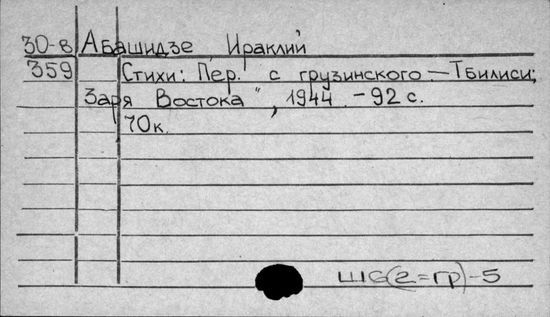 30-в Абашидзе Ираклий
359 Стихи: Пер. с грузинского – Тбилиси;
Заря Востока", 1944. – 92 с.
70к.
Ш6(2=гр)-5